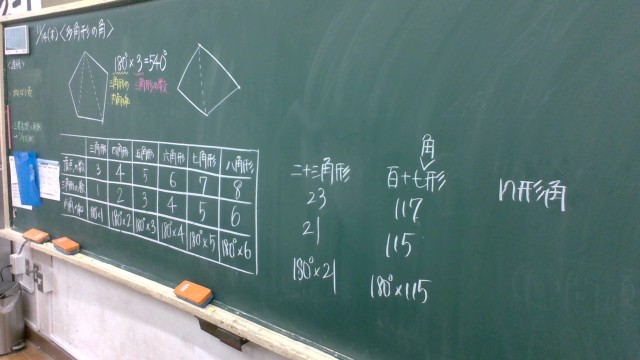 11/14(木)〈多角形の角〉
180°×3=540°
三角形の
内角の和
三角形の数
三角形 四角形 五角形 六角形 七角形 八角形
頂点の数 3 4 5 6 7 8
三角形の数 1 2 3 4 5 6
内角の和 180°×1 180°×2 180°×3 180°×4 180°×5 180°×6
二十三角形
23
21
180°×21
角
百十七形
117
115
180°×115
n形角